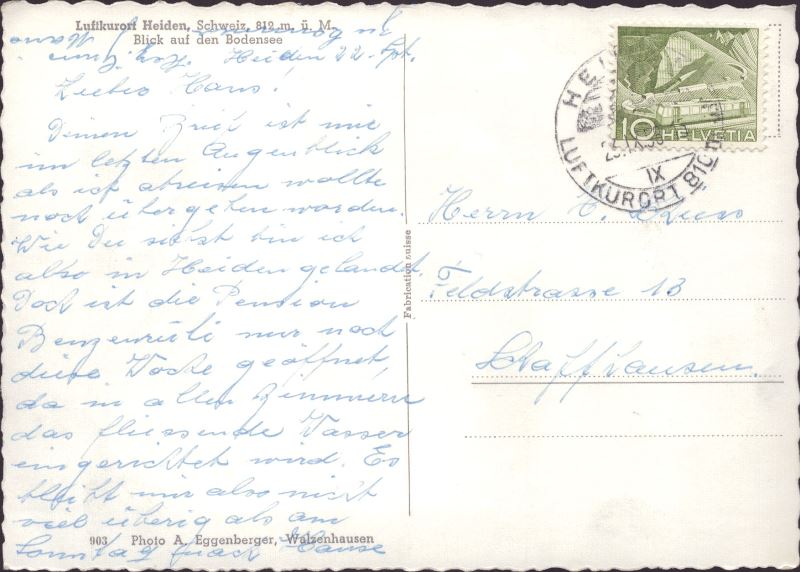 Luftkurort Heiden, Schweiz, 812 m. ü. M.
Blick auf den Bodensee
Heiden 22. Spt.
Liebes Hans!
Deinen Brief ist mir
im letzten Augenblick
als ich abreisen wollte
noch übergeben worden.
Wie Du siehst bin ich
also in Heiden gelandet.
Doch ist die Pension
Benzenrüti nur noch
diese Woche geöffnet,
da in allen Zimmern
das fliessende Wasser
eingerichtet wird. Es
bleibt mir also nicht
viel übrig als am
Sonntag nach Hause
903 Photo A. Eggenberger, Walzenhausen
Fabrication suisse
10 HELVETIA
IX
LUFTKURORT 810 m
Herrn H.
Feldstrasse 13
Schaffhausen.